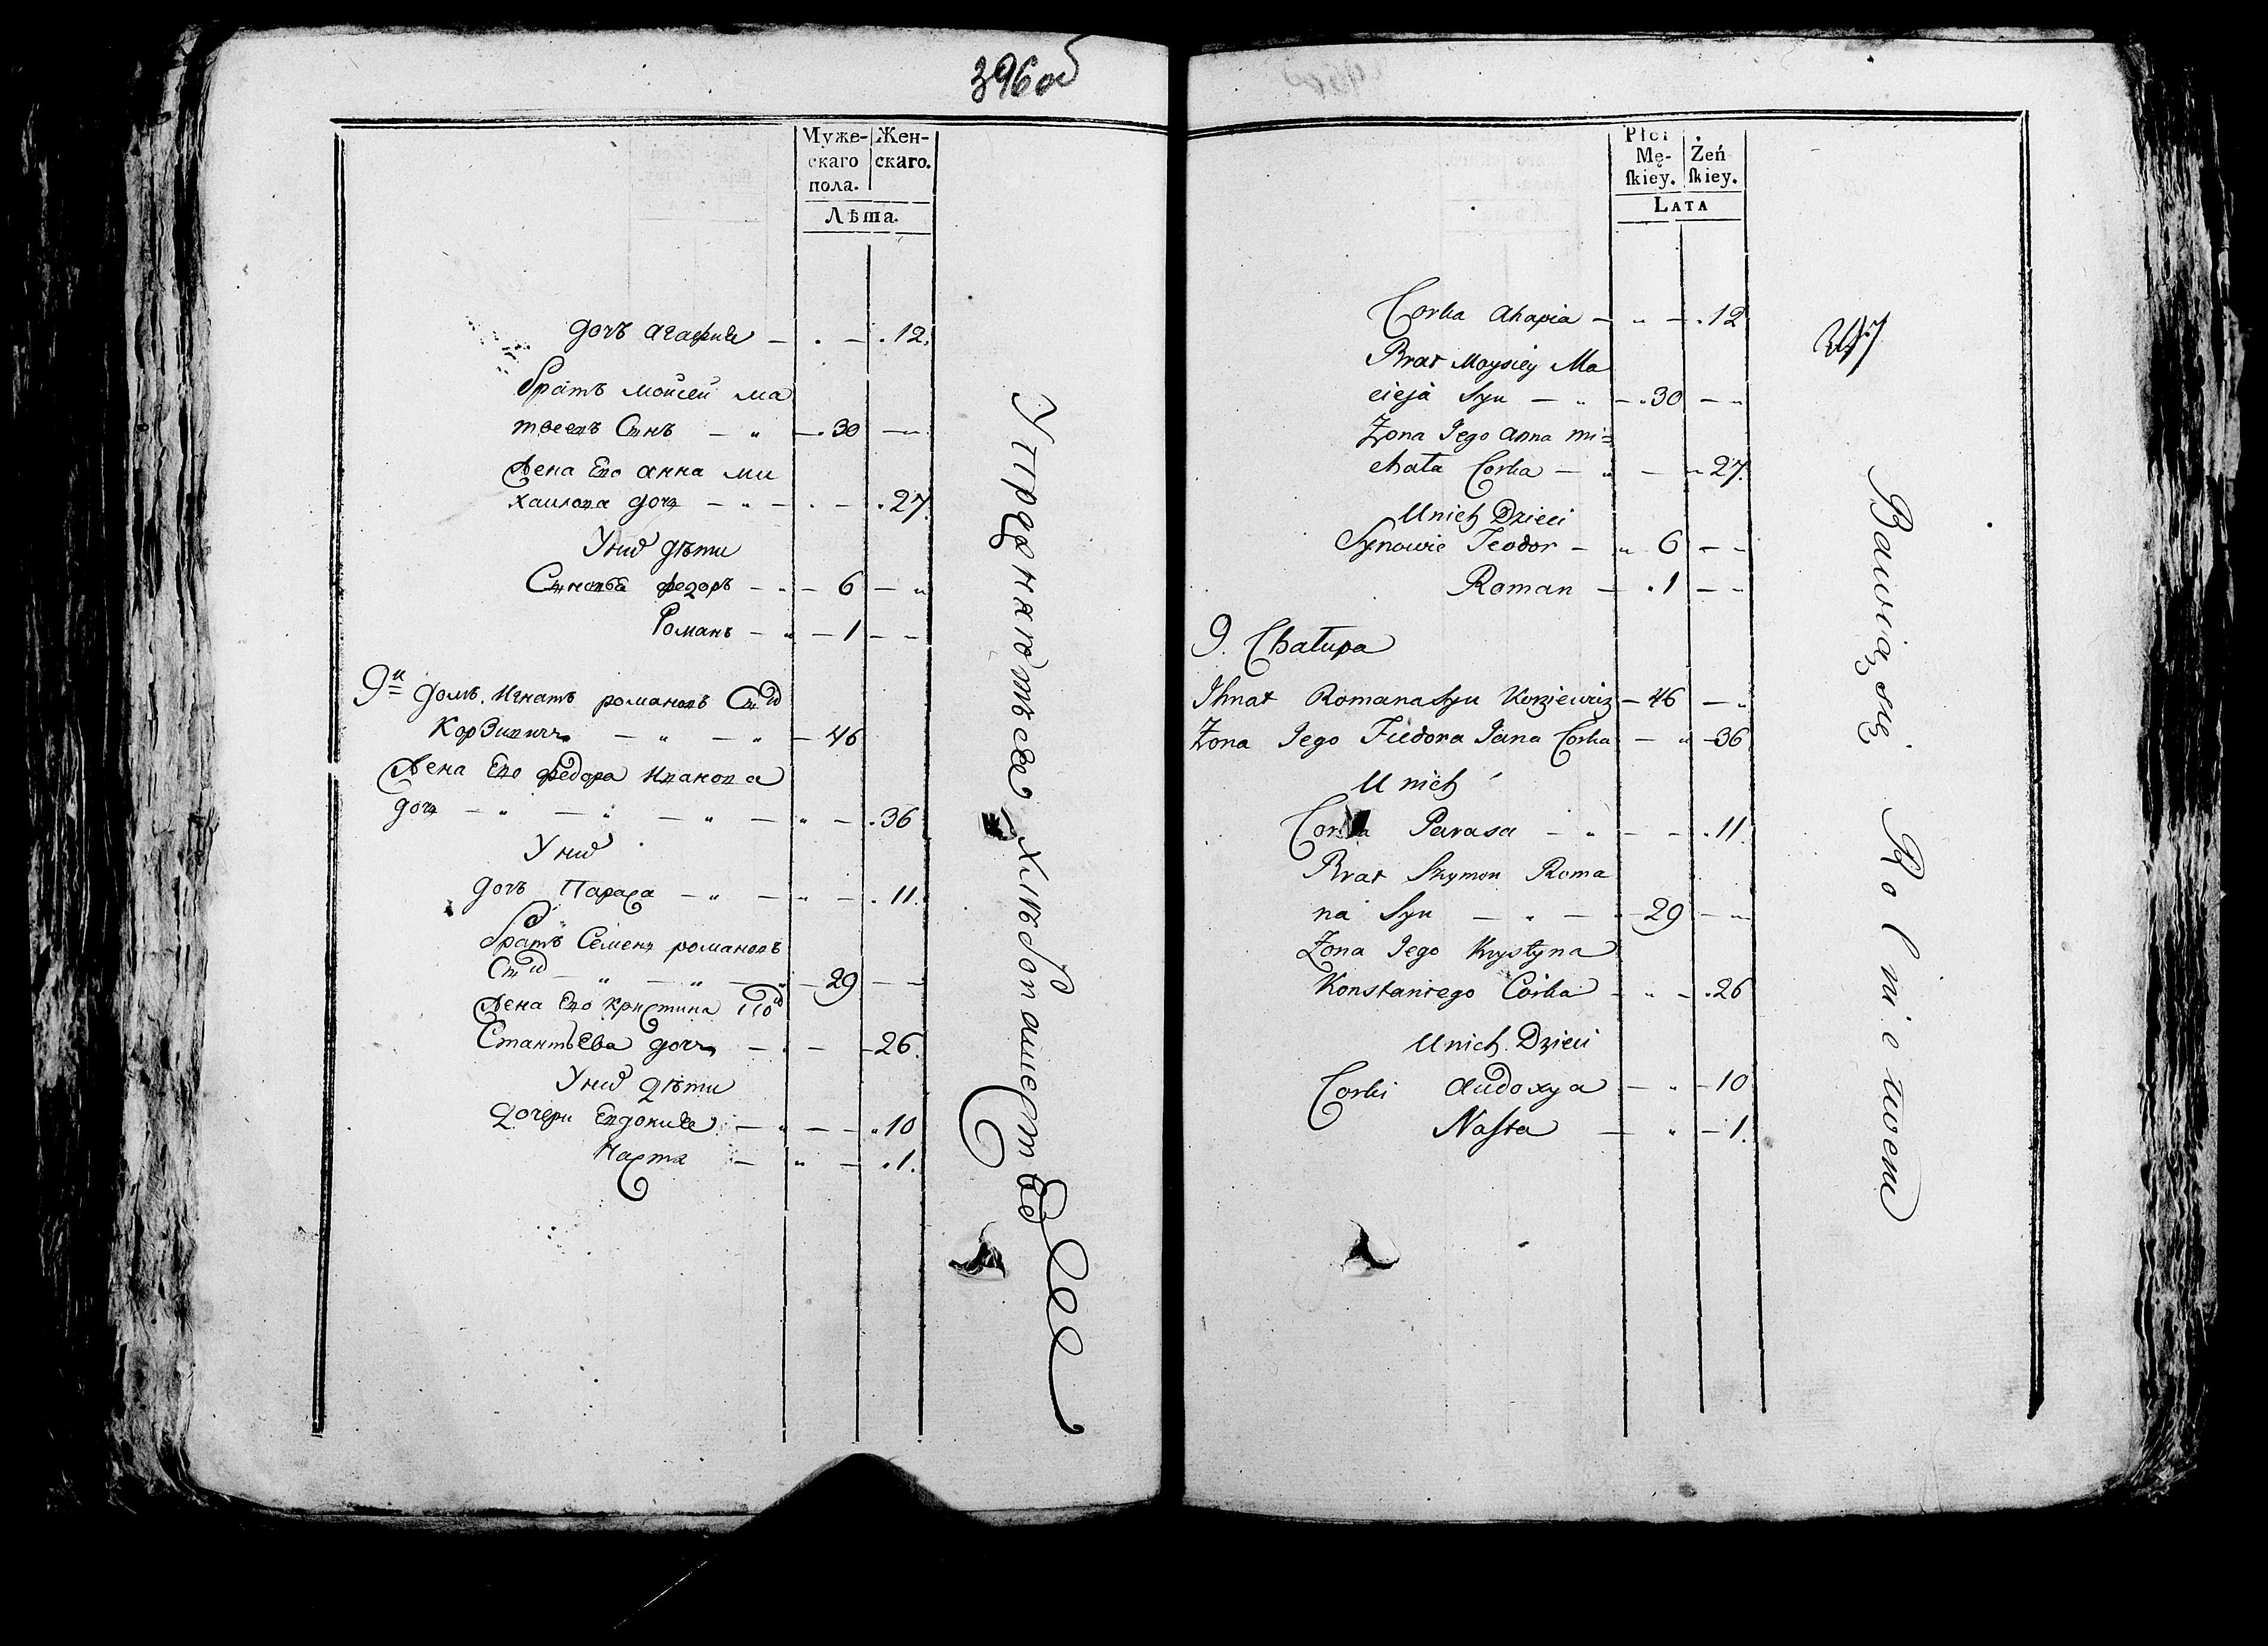 396об
Муже-
скаго
пола.
Жен-
скаго.
Лѣта.
дочь агафия — . — . 12.
братъ моисей ма
твеевъ Снъ — „ — . 30 — „
Жена Его анна ми
хаилова дочь — „ — . — . 27.
Унихъ дѣти
Сыновья федоръ — „ — 6 — „
Романъ — „ — 1 — —
9й домъ. Игнатъ романовъ Снъ
Корзивичъ — „ — „ — 46
Жена Его федора Иванова
дочь — „ — „ — „ — „ — . 36
Унихъ
дочь Параса — „ — „ — . 11.
братъ Семенъ романовъ
Снъ — „ — „ — „ — 29 — —
Жена Его кристина Кон
стантьева дочь — „ — — 26.
Унихъ дѣти
дочери Евдокия — „ — — „ 10
Наста — „ — „ 1.
Упражняютъся хлѣбопашествомъ
Płci
Mę-
ſkiey.
Żeń
ſkiey.
LATA
Corka ahapia — „ — . 12
Brat Moysiey Ma
cieja Syn — „ — „ 30 — „
Zona Jego anna mi=
chała Corka — „ — „ 27.
U nich Dzieci
Synowie Teodor — „ 6 — —
Roman — „ 1 — —
9. Chałupa
Ihnat Romana Syn Korziewicz — 46 — „
Zona Jego Fiedora Jana Corka — „ — 36
U nich
Corka Parasa — „ — — . 11.
Brat Szymon Roma
na Syn — „ — — 29 — „
Zona Jego Krystyna
Konstantego Córka — „ — . 26
U nich Dzieci
Corki audoxya — „ — 10
Naſta — „ — 1.
Bawią się Rolnictwem